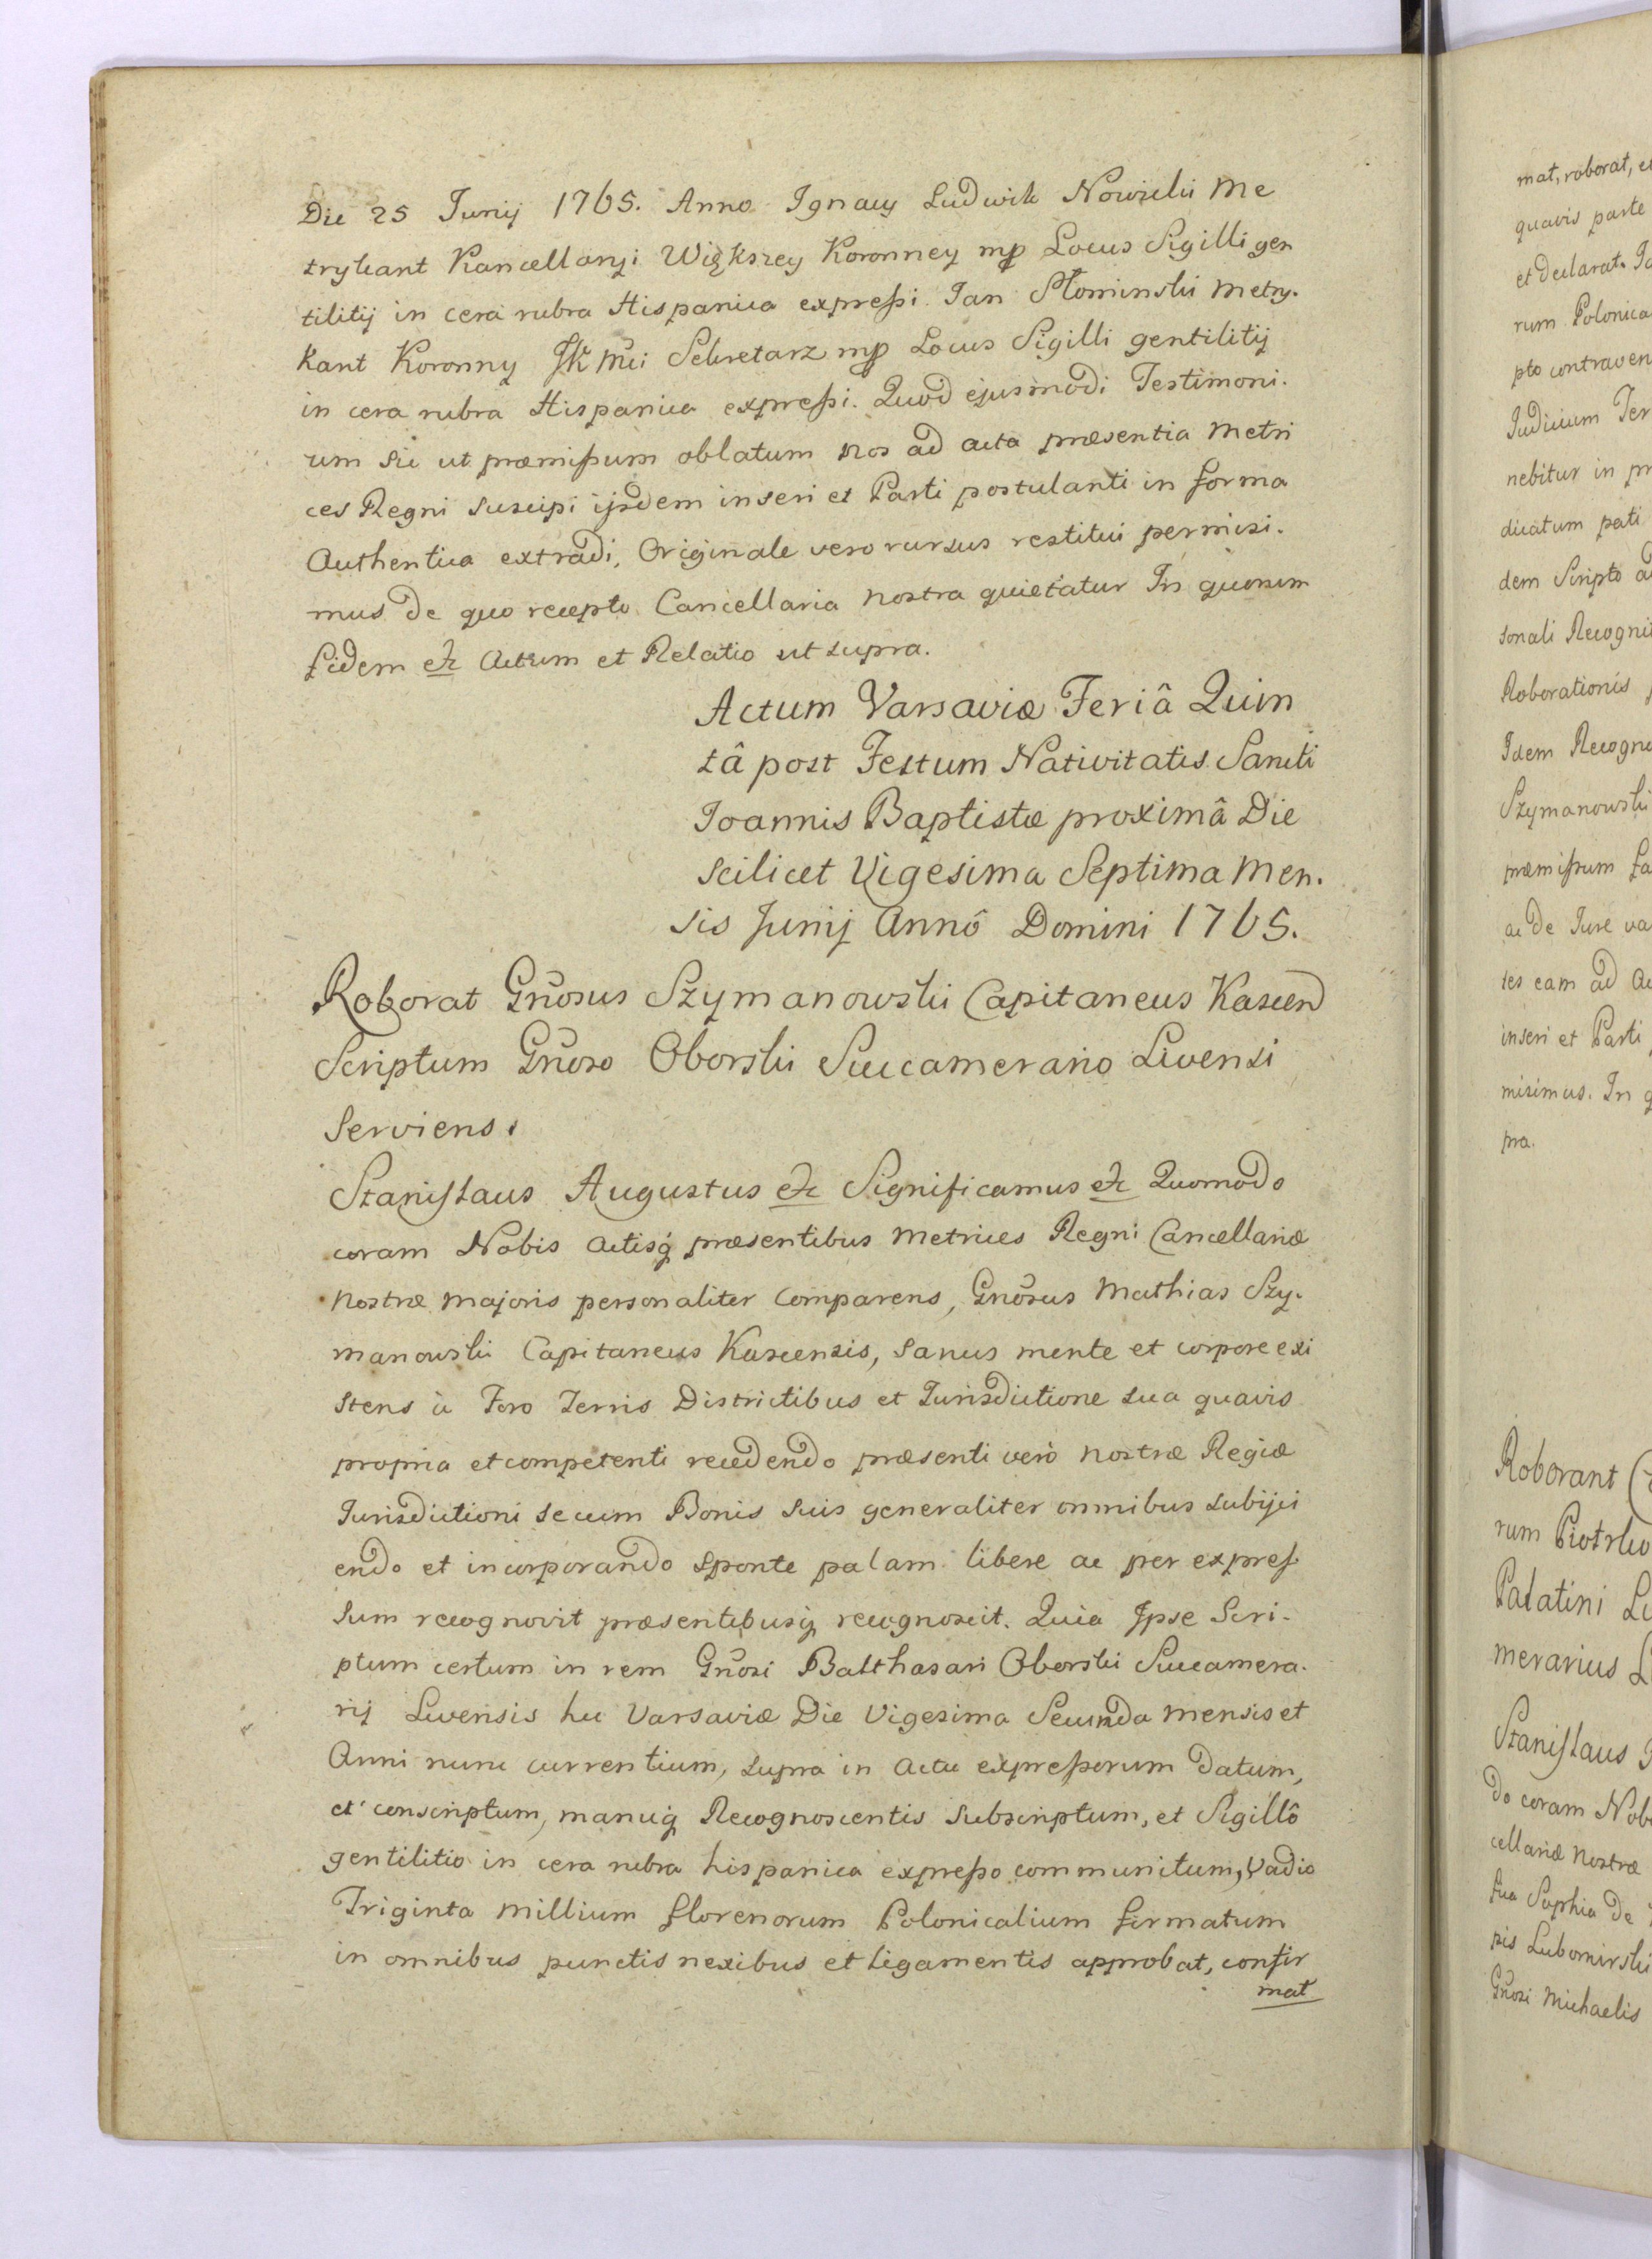 Die 25 Junij 1765. Anno Ignacy Ludwik Nowicki Me
trykant Kancellaryi Większey Koronney mp Locus Sigilli gen
tilitij in cera rubra Hispanica expreſsi Jan Słominski Metry.
kant Koronny JK Mci Sekretarz mp Locus Sigilli gentilitij
in cera rubra Hispanica expreſsi. Quod ejusmodi Testimoni.
um sic ut præmiſsum oblatum nos ad acta præsentia Metri
ces Regni suscipi ijsdem inseri et Parti postulanti in forma
Authentica extradi, Originale vero rursus restitui permisi.
mus de quo recepto Cancellaria nostra quietatur In quorum
fidem etc Actum et Relatio ut supra.
Actum Varsaviæ Feriâ Quin
tâ post Festum Nativitatis Sancti
Joannis Baptistæ proximâ Die
scilicet Vigesima Septima Men.
sis Junij Annô Domini 1765.
Roborat Gnosus Szymanowski Capitaneus Kascen
Scriptum Gnoso Oborski Succamerario Livensi
Serviens.
Staniſlaus Augustus etc Significamus etc Quomodo
coram Nobis Actisq præsentibus Metrices Regni Cancellariæ
Nostræ Majoris personaliter Comparens, Gnosus Mathias Szy.
manowski Capitaneus Kascensis, sanus mente et corpore exi
stens à Foro Terris Districtibus et Jurisdictione sua quavis
propria et competenti recedendo præsenti verò nostræ Regiæ
Jurisdictioni se cum Bonis suis generaliter omnibus subijci
endo et incorporando sponte palam libere ac per expreſ
sum recognovit præsentibusq recognoscit. Quia Ipse Scri-
ptum certum in rem Gnosi Balthasari Oborski Succamera.
rij Livensis hic Varsaviæ Die Vigesima Secunda mensis et
Anni nunc currentium, supra in Actu expreſsorum datum,
et conscriptum, manuq Recognoscentis subscriptum, et Sigillô
gentilitio in cera rubra hispanica expreſso communitum, Vadio
Triginta Millium florenorum Polonicalium firmatum
in omnibus punctis nexibus et ligamentis approbat, confir
mat
mat, roborat, e
quavis parte
et declarat. Ja
rum Polonica
pto contraven
Judicium Ter
nebitur in pr
dicatum pati
dem Scripto a
sonali Recogni
Roborationis
Idem Recogno
Szymanowski
præmiſsum fa
ac de Jure va
tes eam ad Ac
inseri et Parti
misimus. In q
pra.
Roborant
rum Piotrko
Palatini Lu
merarius L
Staniſlaus
do coram Nob
cellariæ Nostræ
sua Sophia de
pis Lubomirski
Gnosi Michaelis